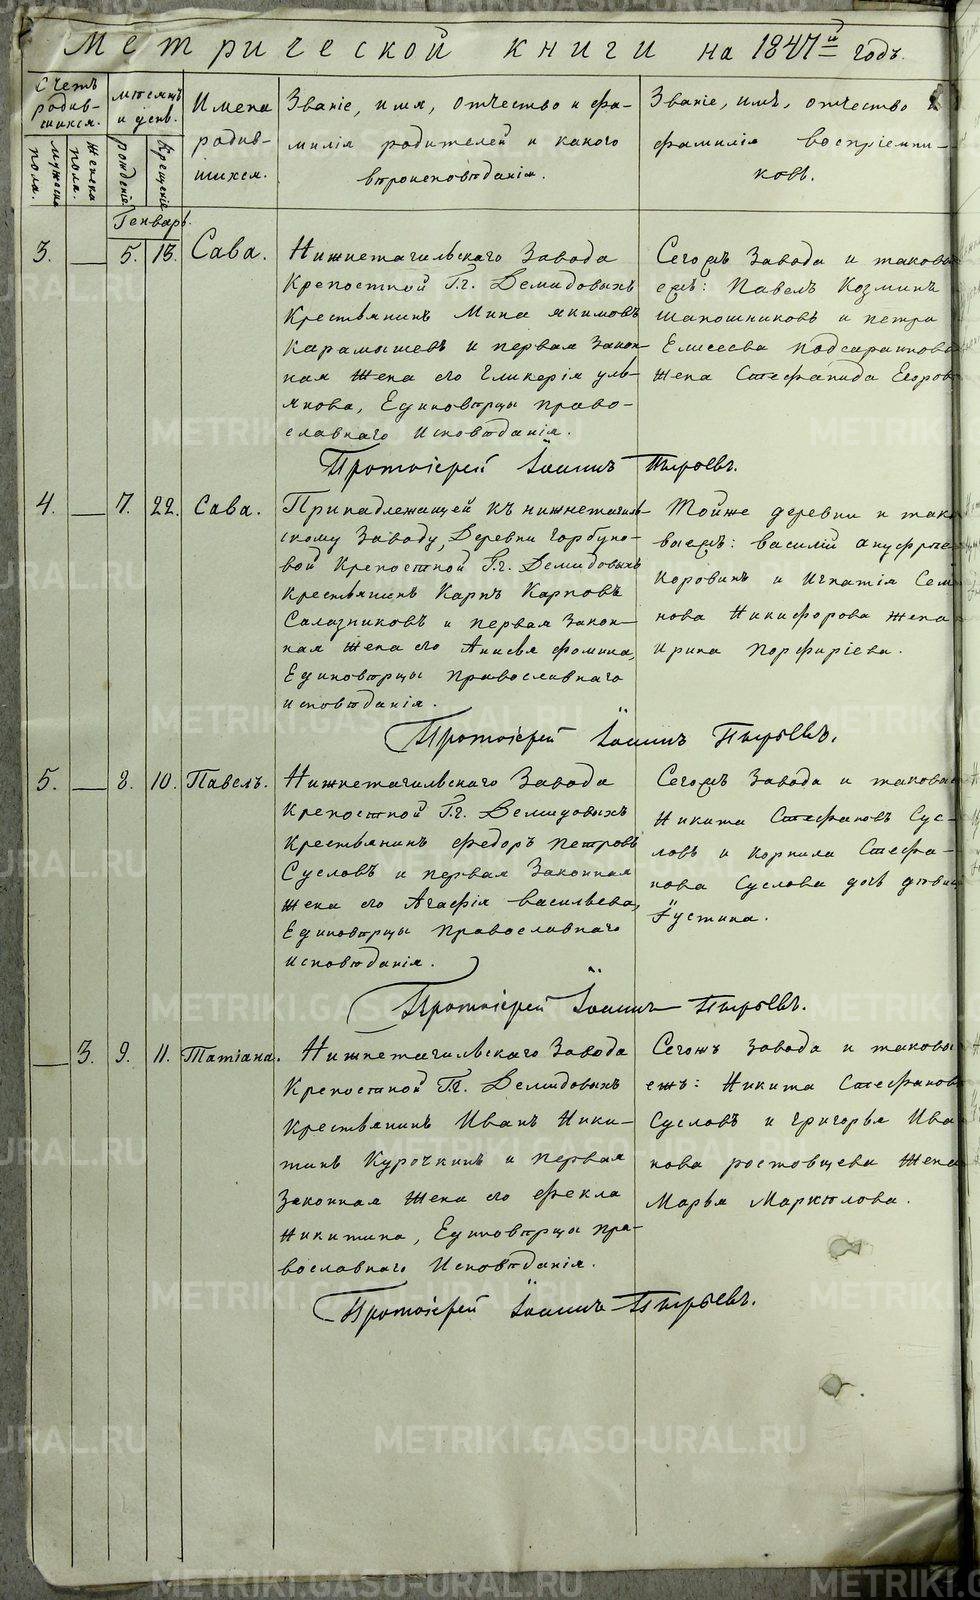 Метрической книги на 1847й годъ.
Счетъ родив-
шихся.
Мужеска пола.
Женска пола.
Месяцъ и день.
рожденіе
Крещеніе
Имена
родив-
шихся.
Званіе, имя, отчество и фа-
милія родителей и какого
вѣроисповѣданія.
Званіе, имя, отчество и
фамилія воспріемни-
ковъ.
Генварь.
3. — 5. 13. Сава.
Нижнетагильскаго Завода
Крепостной Г.г. Демидовыхъ
Крестьянинъ Мина Якимовъ
Карамышевъ и первая закон-
ная жена его Гликерія Уль-
янова, Единовѣрцы право-
славнаго Исповѣданія.
Сегожъ Завода и таковы
ежъ: Павелъ Козминъ
Шапошниковъ и Петра
Елисеева Подсараннова
жена Стефанида Егоров
Протоіерей Іоаннъ Пырьевъ.
4. — 7. 22. Сава.
Принадлежащей къ нижнетагиль-
скому Заводу, Деревни Горбуно-
вой Крепостной Г.г. Демидовыхъ
Крестьянинъ Карпъ Карповъ
Салазниковъ и первая Закон-
ная жена его Анисья Фомина,
Единовѣрцы Православнаго
исповѣданія.
Тойже деревни и тако
выежъ: Василій Ануфріе
Коровинъ и Игнатія Семі
нова Никифорова жена
Ирина Порфиріева.
Протоіерей Іоаннъ Пырьевъ.
5. — 8. 10. Павелъ.
Нижнетагильскаго Завода
Крепостной Г.г. Демидовыхъ
Крестьянинъ Федоръ Петровъ
Сусловъ и первая Законная
жена его Агафія Васильева,
Единовѣрцы Православнаго
исповѣданія.
Сегожъ Завода и таковые
Никита Стефановъ Сус-
ловъ и Корнила Стефа-
нова Суслова дочь девица
Іустина.
Протоіерей Іоаннъ Пырьевъ.
— 3. 9. 11. Татіана.
Нижнетагильскаго Завода
Крепостной Г.г. Демидовыхъ
Крестьянинъ Иванъ Ники-
тинъ Курочкинъ и первая
Законная жена его Фекла
Никитина, Единовѣрцы пра-
вославнаго Исповѣданія.
Сегожъ Завода и таковы
ежъ: Никита Стефановъ
Сусловъ и Григорья Ива
нова Ростовщева жена
Марья Маркѣлова.
Протоіерей Іоаннъ Пырьевъ.
METRIKI.GASO-URAL.RU